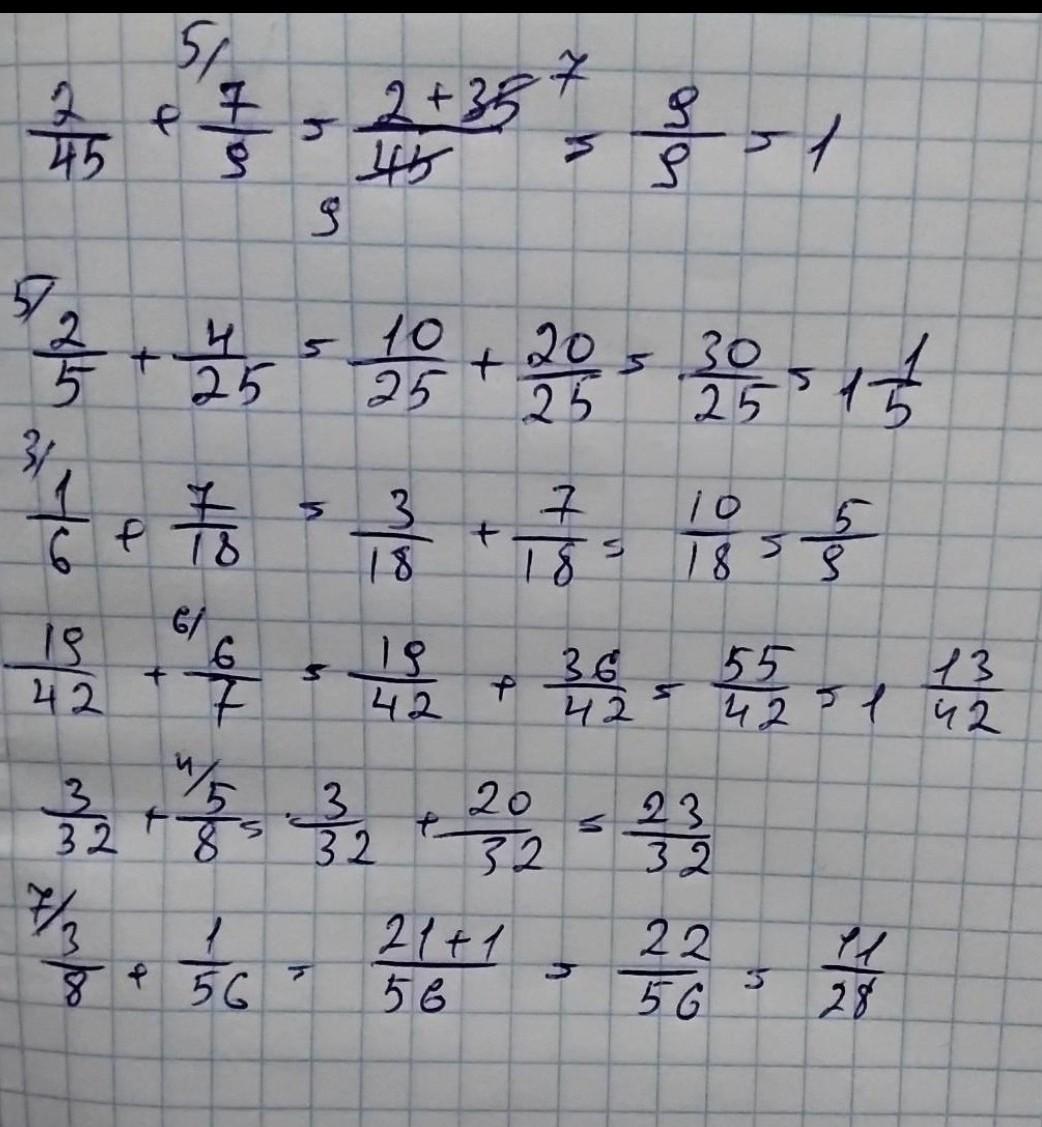 2/45 + 5/ 7/9 = (2+35)/45 7 9 = 9/9 = 1
5/ 2/5 + 4/25 = 10/25 + 20/25 = 30/25 = 1 1/5
3/ 1/6 + 7/18 = 3/18 + 7/18 = 10/18 = 5/9
19/42 + 6/ 6/7 = 19/42 + 36/42 = 55/42 = 1 13/42
3/32 + 4/ 5/8 = 3/32 + 20/32 = 23/32
7/ 3/8 + 1/56 = (21+1)/56 = 22/56 = 11/28